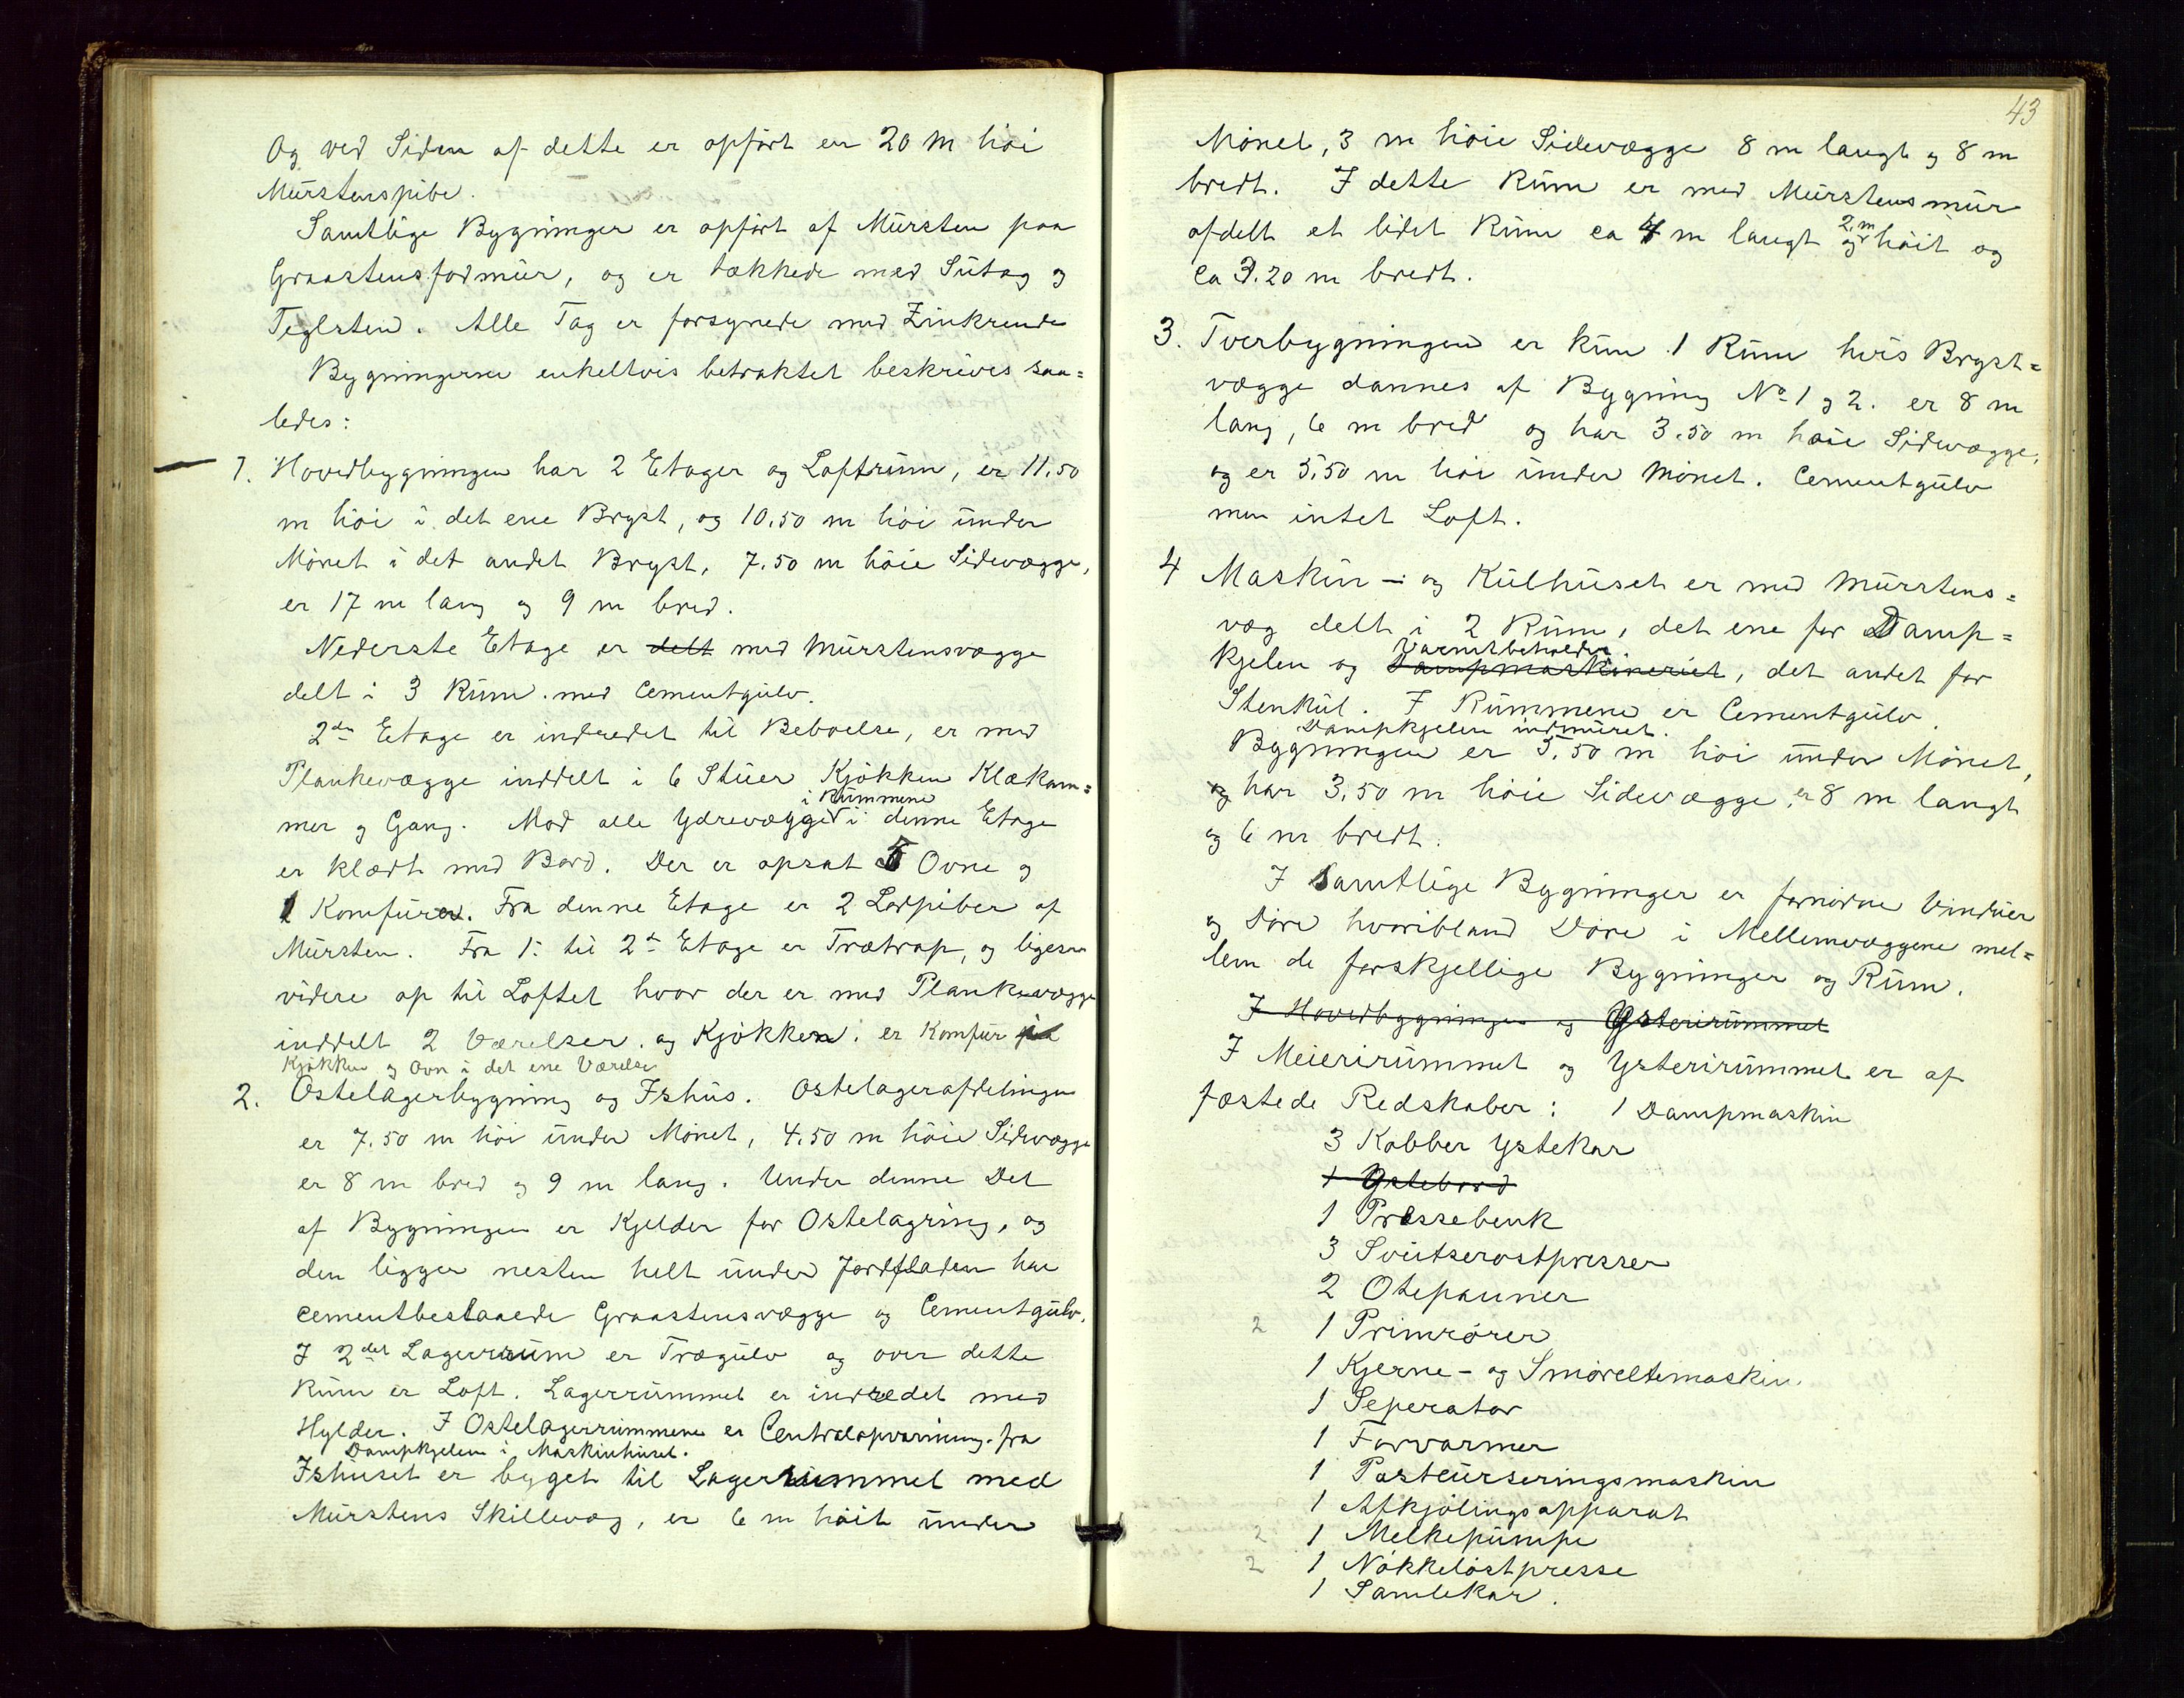 Og ved Siden af dette er opført en 20 m høi
Murstenspibe.
Samtlige Bygninger er opført af Mursten paa
Graastensfodmur, og er tækkede med Sutag og
Teglsten. Alle Tag er forsynede med Zinkrende
Bygningerne enkeltvis betraktet beskrives saa=
ledes:
1. Hovedbygningen har 2 Etager og Loftrum, er 11,50
m høi i det ene Bryst, og 10,50 m høi under
Mønet i det andet Bryst, 7.50 m høie Sidevægge,
er 17 m lang og 9 m bred.
Nederste Etage er delt med Murstensvægge
delt i 3 Rum med Cementgulv.
2den Etage er indredet til Beboelse, er med
Plankevægge inddelt i 6 Stuer Kjøkken Klækam=
i Rummene
mer og Gang. Mod alle Ydrevægge i denne Etage
er klædt med Bord. Der er opsat 5 Ovne og
1 Komfurer. Fra denne Etage er 2 Lodpiber af
Mursten. Fra 1. til 2d Etage er Trætrap, og ligesaa
videre op til Loftet hvor der er med Plankevægge
inddelt 2 Værelser og Kjøkken. er Komfur i
Kjøkken og Ovn i det ene Værelse
2. Ostelagerbygning og Ishus. Ostelagerafdelingen
er 7.50 m høi under Mønet, 4.50 m høie Sidevægge
er 8 m bred og 9 m lang. Under denne Del
af Bygningen er Kjelder for Ostelagring, og
den ligger nesten helt under Jordfladen har
cementbeslaaede Graastensvægge og Cementgulv.
I 2det Lagerrum er Trægulv og over dette
Rum er Loft. Lagerrummet er indredet med
Hylder. I Ostelagerrummene er Centralopvarming fra
Dampkjelen i Maskinhuset.
Ishuset er bygget til Lagerrummet med
Murstens Skillevæg, er 6 m høit under
43
Mønet, 3 m høie Sidevægge 8 m langt og 8 m
bredt. I dette Rum er med Murstensmur
2 m
afdelt et lidet Rum ca 4 m langt og høit og
ca 3.20 m bredt.
3. Tverbygningen er kun 1 Rum hvis Bryst=
vægge dannes af Bygning No 1 og 2. er 8 m
lang, 6 m bred og har 3.50 m høie Sidevægge,
og er 5,50 m høi under Mønet. Cementgulv
men intet Loft.
4 Maskin- og Kulhuset er med Murstens=
væg delt i 2 Rum, det ene for Damp=
Varmtbeholder
kjelen og Dampmaskineriet, det andet for
Stenkul. I Rummene er Cementgulv.
Dampkjelen indmuret.
Bygningen er 5,50 m høi under Mønet,
og har 3,50 m høie Sidevægge, er 8 m langt
og 6 m bredt.
I Samtlige Bygninger er fornødne Vinduer
og Døre hvoribland Døre i Mellemvæggene mel=
lem de forskjellige Bygninger og Rum.
I Hovedbygningen og Ysterirummet
I Meierirummet og Ysterirummet er af
fæstede Redskaber: 1 Dampmaskin
3 Kobber Ystekar
1 Ystebord
1 Pressebenk
3 Sveitserostpresser
2 Ostepanner
2 1 Primrører
1 Kjerne- og Smøreltemaskin.
1 Seperator
1 Forvarmer
1 Pasteurseringsmaskin
1 Afkjølingsapparat
2 1 Melkepumpe
2 1 Nøkkelostpresse
1 Samlekar.